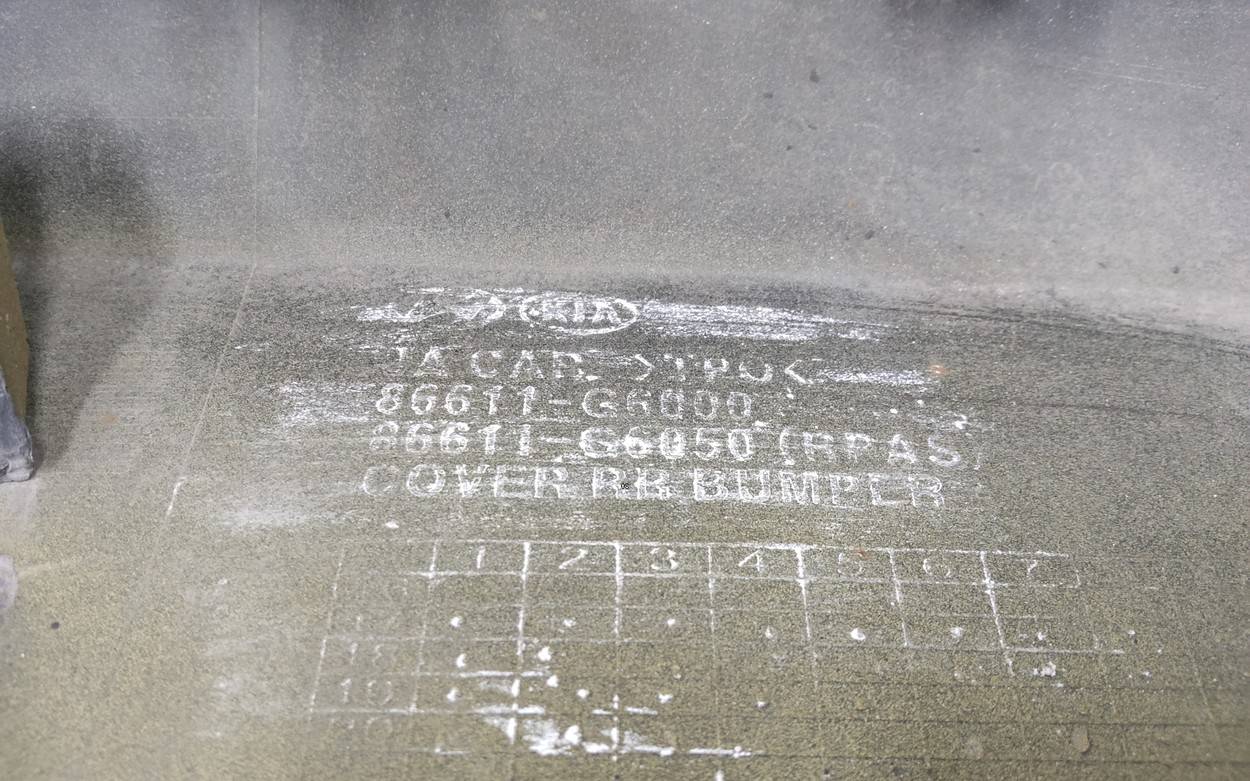 KIA
JA CAR >TPO<
86611-G6000
86611-G6050 (RPAS)
COVER RR BUMPER
1 2 3 4 5 6 7
18
19